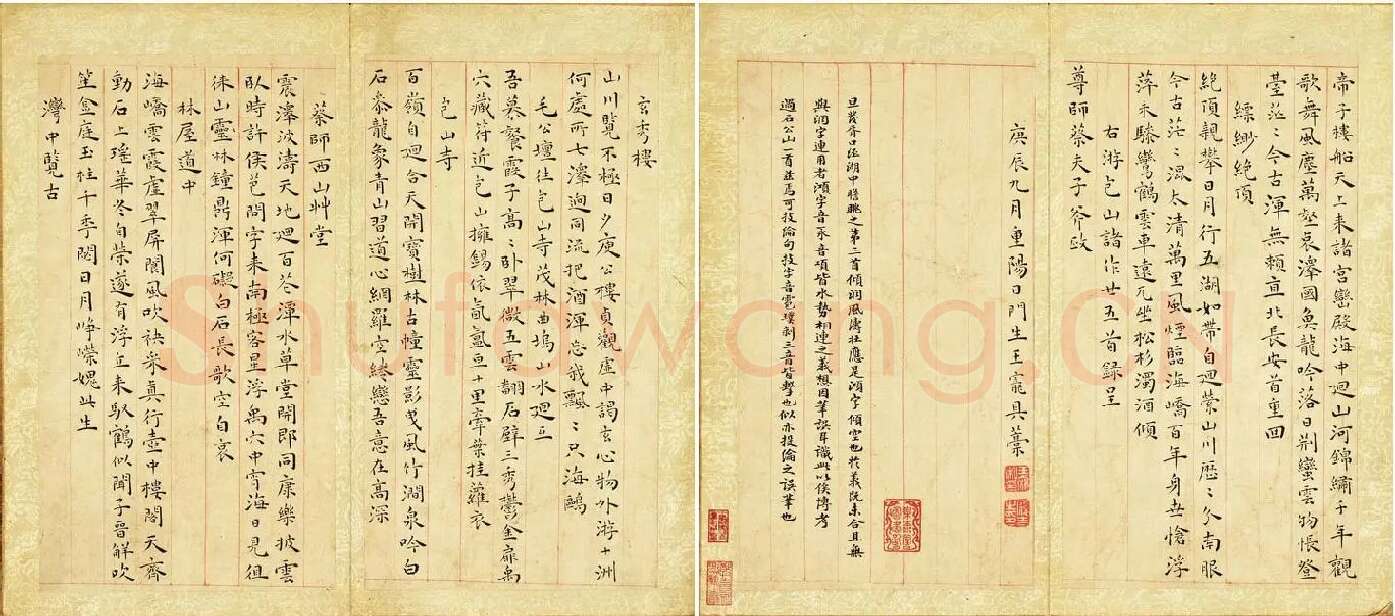 玄秀樓
山川覽不極日夕庾公樓貞觀虛中謁玄心物外游十洲
何處所七澤迥同流把酒渾忘我飄〻只海鷗
毛公壇往包山寺茂林曲塢山水迴互
吾慕餐霞子高〻卧翠微五雲翻石壁三秀鬱金扉禹
穴藏符近包山擁錫依氤氳亘十里牽葉挂蘿衣
包山寺
百嶺自迴合天開寶樹林古幢靈影曳風竹澗泉吟白
石泰龍象青山習道心網羅空綣戀吾意在高深
蔡師西山艸堂
震澤波濤天地迴百花潭水草堂開郎同康樂披雲
臥時許侯芭問字来南極客星浮禹穴中宵海日見徂
徠山靈林鐘鼎渾何礙白石長歌空自哀
林屋道中
海嶠雲霞虛翠屏閬風吹袂采真行壺中樓閣天齊
動石上瑤華冬自榮遂有浮丘来馭鶴似聞子晉觧吹
笙金庭玉柱千季閟日月崢嶸媿此生
灣中覽古
帝子樓船天上来諸宮巒殿海中迴山河錦繡千年觀
歌舞風塵萬壑哀澤國魚龍吟落日荆蠻雲物悵登
臺茫〻今古渾無賴直北長安首重回
縹緲絕頂
絕頂親攀日月行五湖如帶自迴縈山川歷〻分南眼
今古茫〻混太清萬里風煙臨海嶠百年身世愴浮
萍未驂鸞鶴雲車遠兀坐松杉濁酒傾
右游包山諸作廿五首録呈
尊師蔡夫子斧政
庚辰九月重陽日門生王寵具藁
旦發胥口經湖中瞻眺之第二首傾洞風濤壯應是澒字傾空也於義既未合且無
與洞字連用者澒字音汞音項皆水勢相連之義想因筆誤耳識此以俟博考
過石公山一首
Shufawang.CN